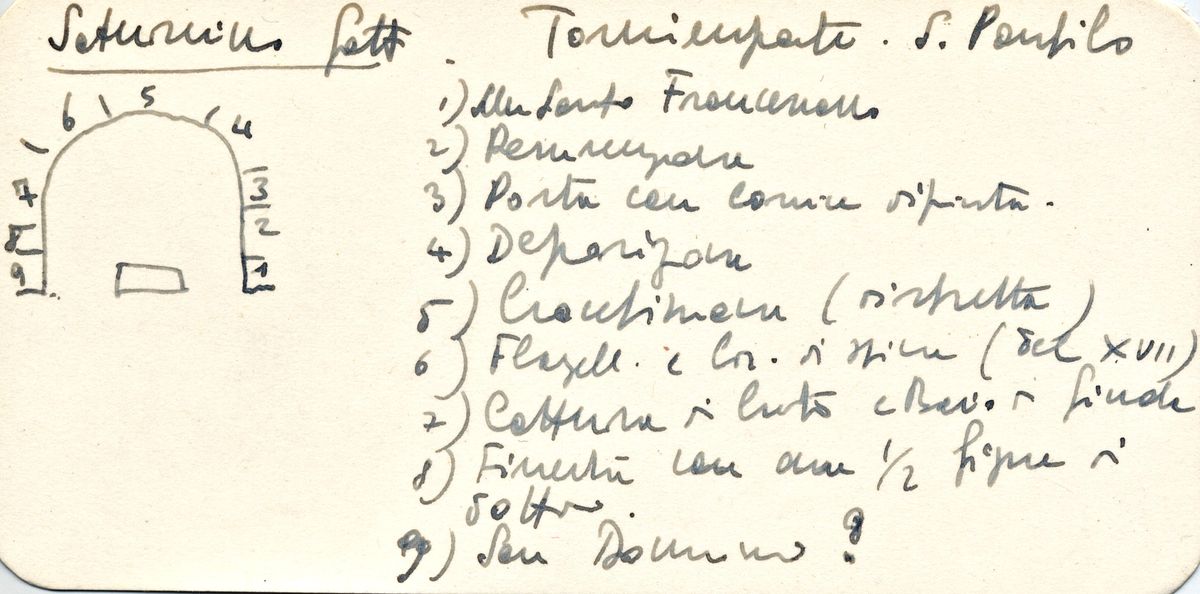 Saturnino Gatti. Tornimparte. S. Panfilo
6 5 4
7 3
8 2
9 1
1) Un Santo Francescano
2) Resurrezione
3) Porta con cornice dipinta.
4) Deposizione
5) Crocifissione (ristretta)
6) Flagell. e Cor. di spine (del XVII)
7) Cattura di Cristo e Bacio di Giuda
8) Finestra con due 1/2 figure di
dottori.
9) San Domenico?